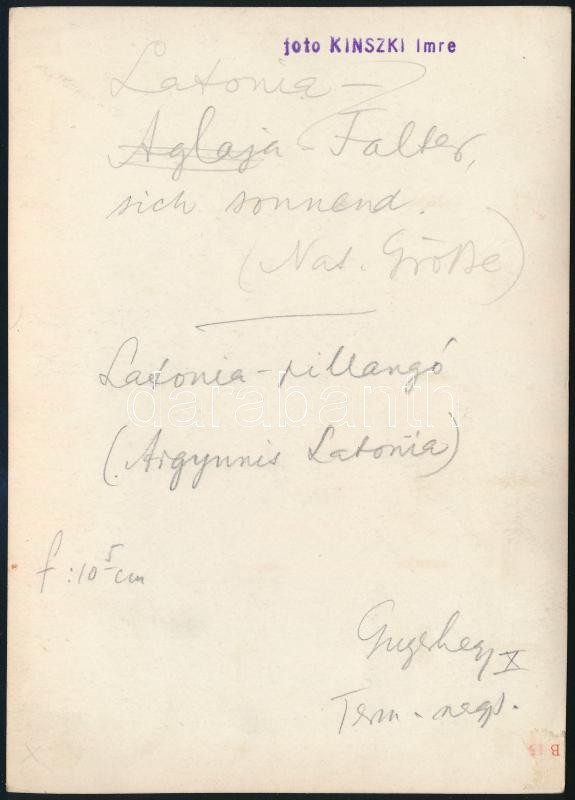 foto KINSZKI Imre
Latonia-
Aglaja-Falter,
sich sonnend.
(Nat. Größe)
Latonia-pillangó
darabanth
(Argynnis Latonia)
f:10 5 cm
Gugerhegy X
Term. nagys.
B 15